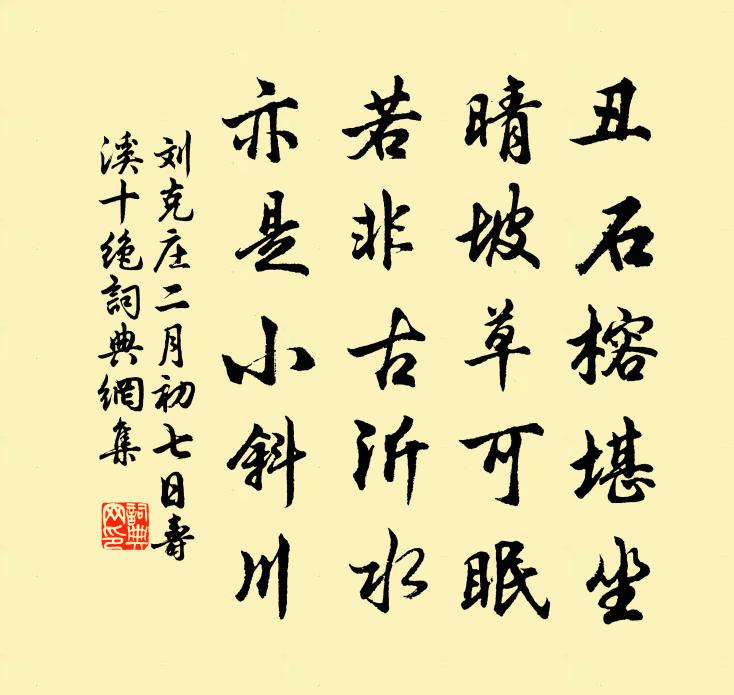 丑石榕堪坐
晴坡草可眠
若非古沂水
亦是小斜川
刘克庄二月初七日寿
溪十绝词典網集
詞典网印